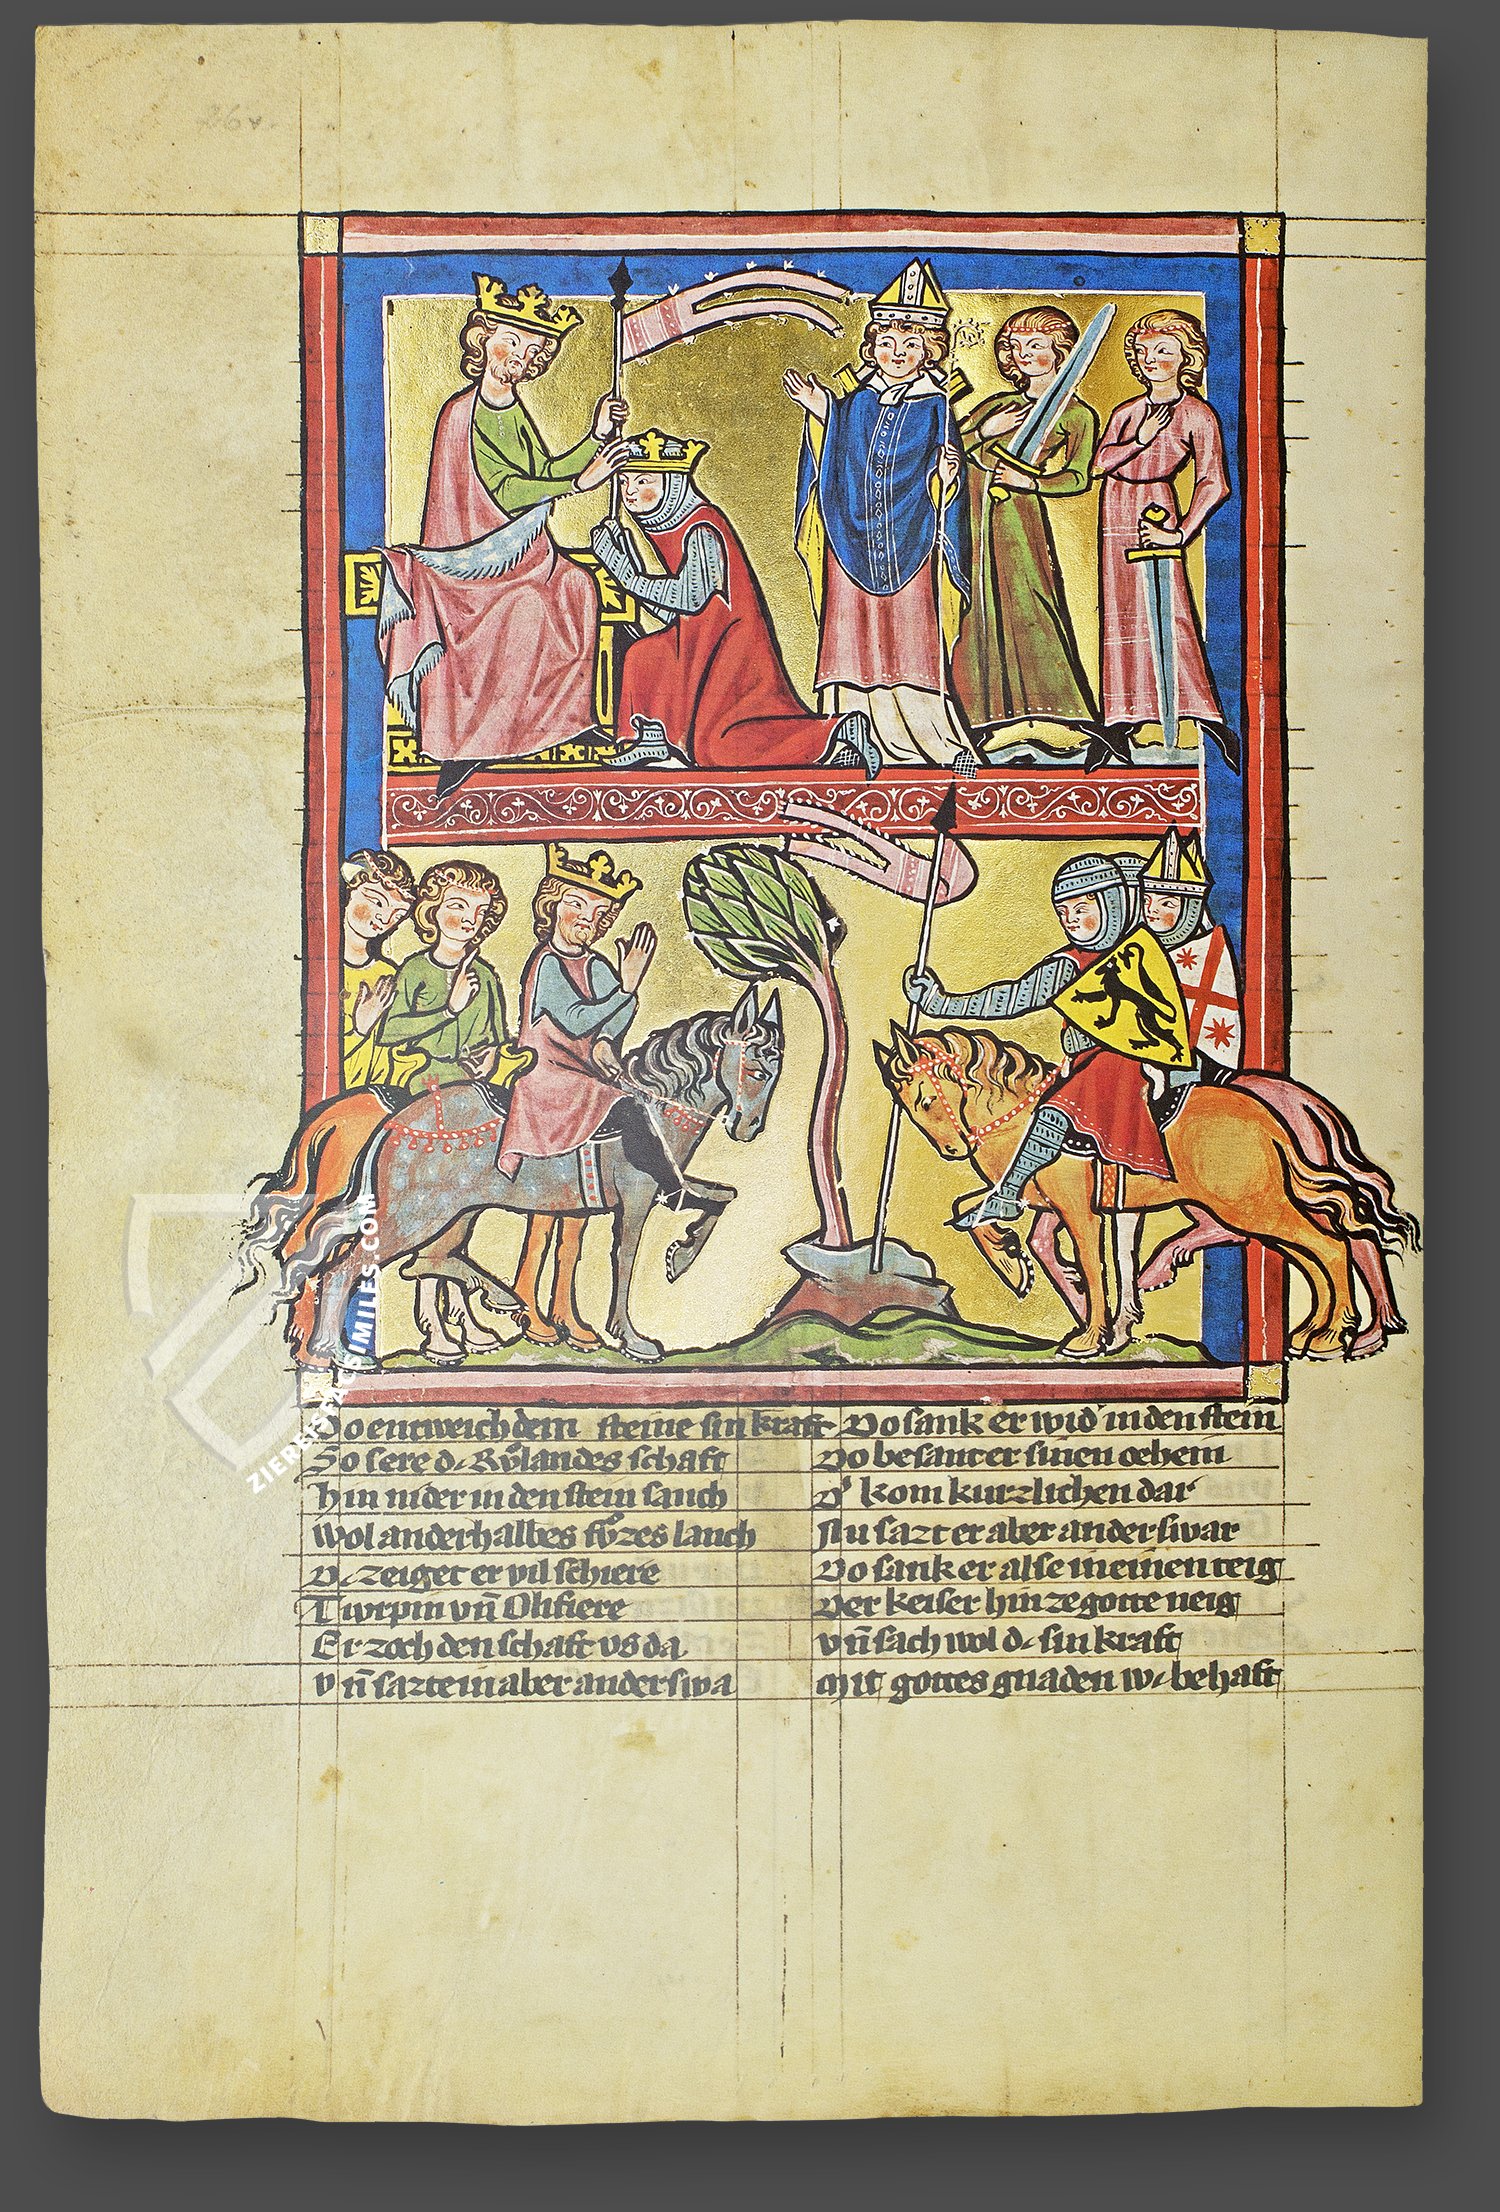 26v.
Do entweich dem steine sin kraft
So sere d᷑ Růlandes schaft
Hin nider in den stein sanch
Wol anderhalbes fůzes lanch
D᷑ zeiget er vil schiere
Turpin vn̄ Olifiere
Er zoch den schaft vs da
Vn̄ sazte in aber anderswa
Do sank er wid᷑ in den stein
Do besant er sinen oehein
D᷑ kom kurzlichen dar
Nu sazt er aber anderswar
Do sank er alse in einen teig
Der keiser hin ze gotte neig
Vn̄ sach wol d᷑ sin kraft
Mit gottes gnaden w᷑ behaft
ZIEREIS FACSIMILES.COM